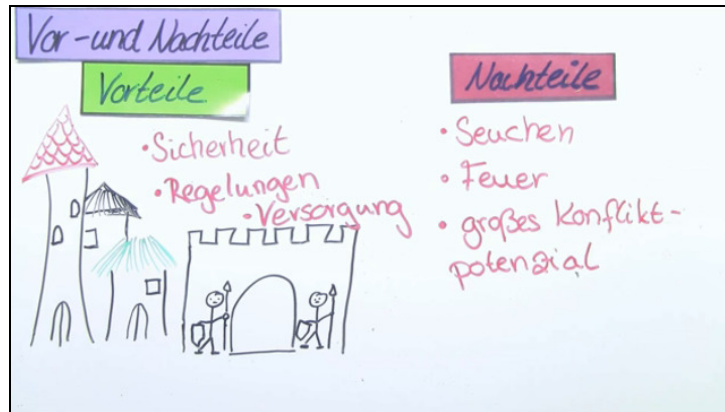 Vor- und Nachteile
Vorteile
• Sicherheit
• Regelungen
• Versorgung
Nachteile
• Seuchen
• Feuer
• großes Konflikt-
potenzial